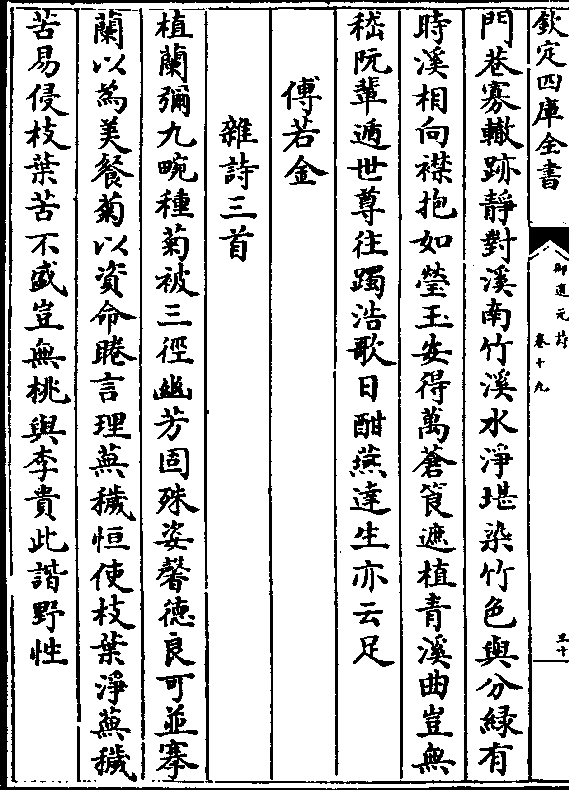 欽定四庫全書
御選元詩
卷十九
三十
門巷寡轍跡靜對溪南竹溪水淨堪染竹色與分緑有
時溪相向襟抱如瑩玉安得萬蒼筤遮植青溪曲豈無
嵇阮輩遁世尊往躅浩歌日酣燕達生亦云足
傅若金
雜詩三首
植蘭彌九畹種菊被三徑幽芳固殊姿馨德良可並搴
蘭以為美餐菊以資命睠言理蕪穢恒使枝葉淨蕪穢
苦易侵枝葉苦不盛豈無桃與李貴此諧野性